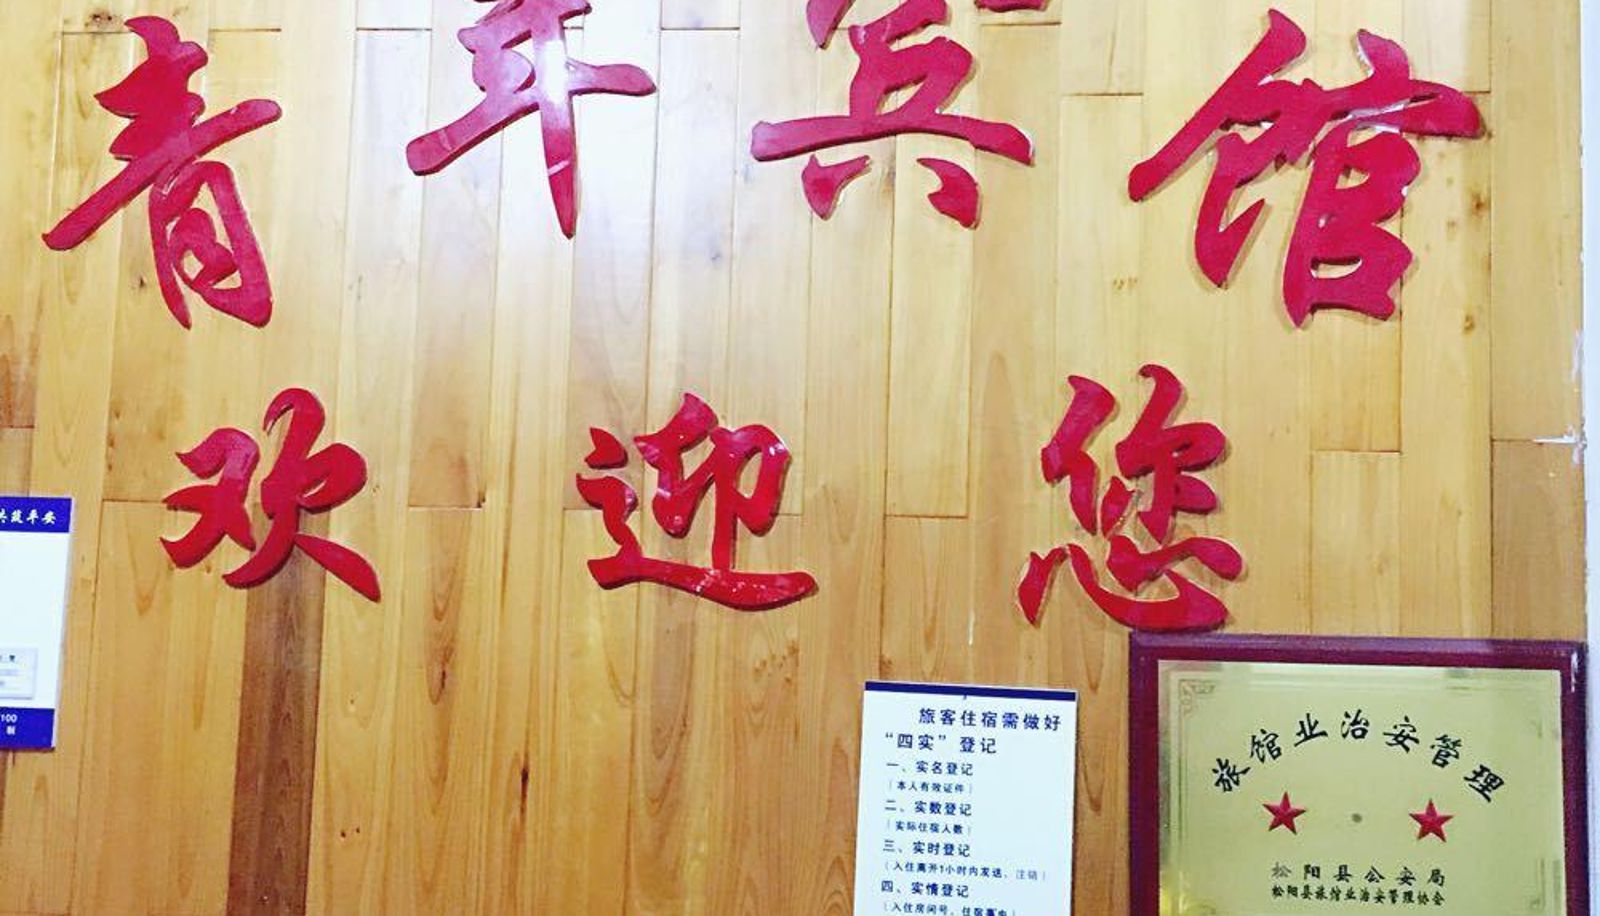 青年宾馆
欢迎您
共筑平安
100
制
旅客住宿需做好
“四实”登记
一、实名登记
（本人有效证件）
二、实数登记
（实际住宿人数）
三、实时登记
（入住离开1小时内发送、注销）
四、实情登记
旅馆业治安管理
松阳县公安局
松阳县旅馆业治安管理协会